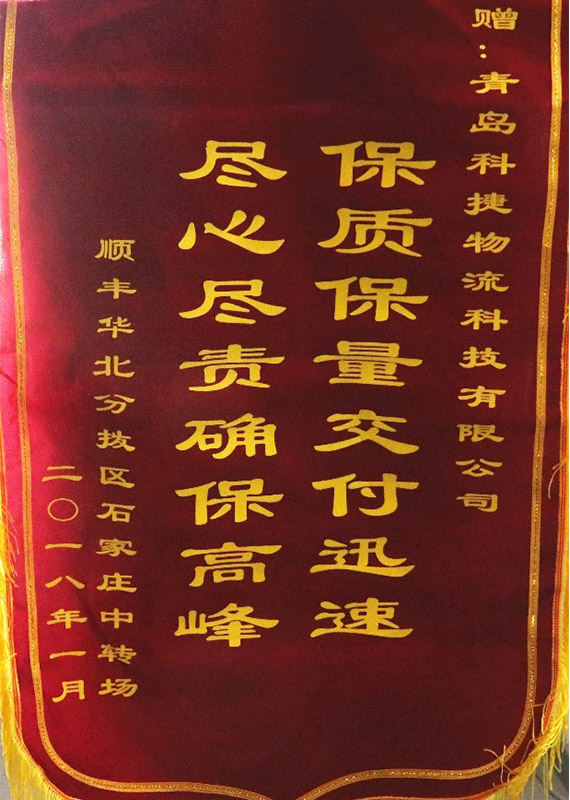 赠：青岛科捷物流科技有限公司
保质保量交付迅速
尽心尽责确保高峰
顺丰华北分拨区石家庄中转场
二〇一八年一月